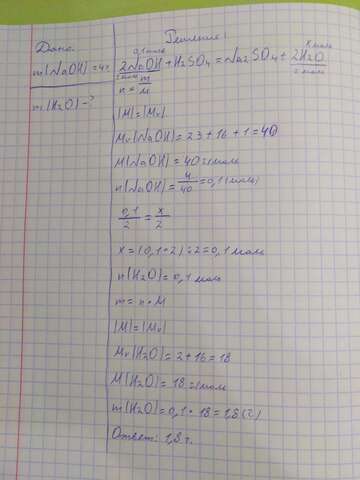 Дано:
m(NaOH)=4г
m(H2O)-?
Решение:
0,1моль x моль
2NaOH+H2SO4=Na2SO4+2H2O
2моль 2моль
n=m/M
|M|=|Mr|
Mr(NaOH)=23+16+1=40
M(NaOH)=40г/моль
n(NaOH)=4/40=0,1(моль)
0,1/2=x/2
x=(0,1*2):2=0,1моль
n(H2O)=0,1моль
m=n*M
|M|=|Mr|
Mr(H2O)=2+16=18
M(H2O)=18г/моль
m(H2O)=0,1*18=1,8(г)
Ответ: 1,8г.